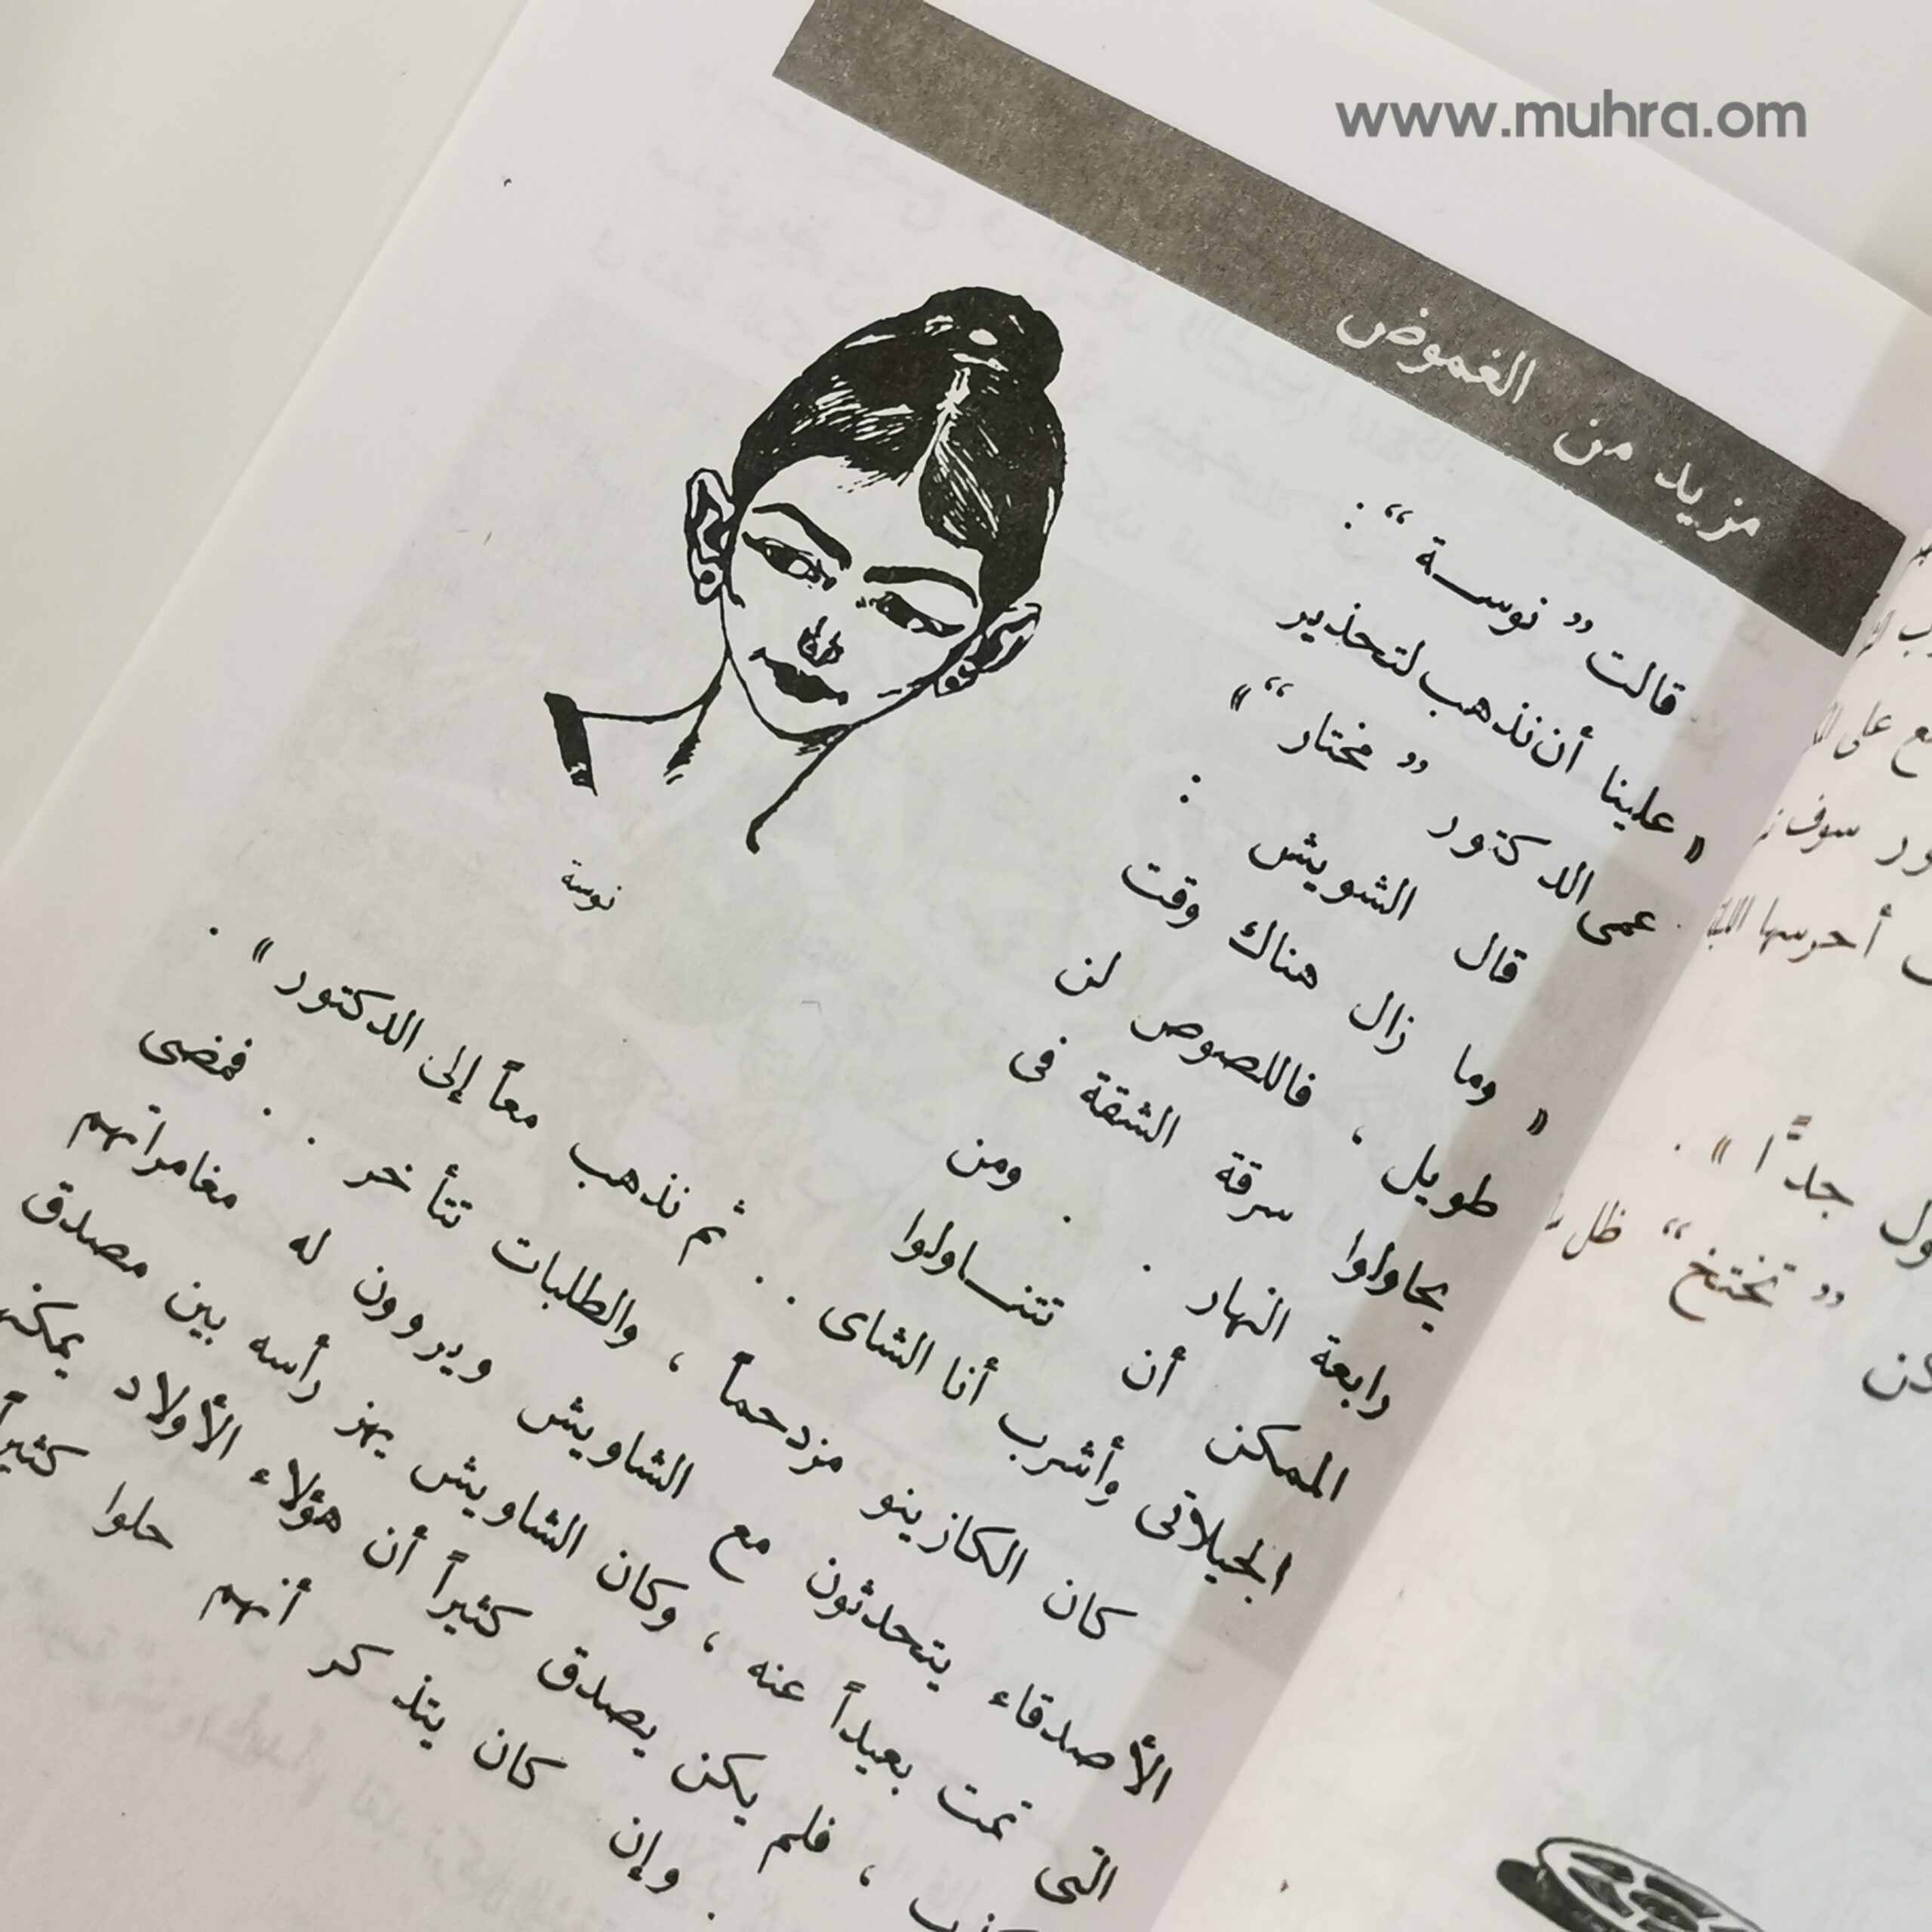 www.muhra.om
مزيد من الغموض
قالت ” نوسة “ :
« علينا أن نذهب لتحذير
عمى الدكتور ” مختار “ »
قال الشويش :
« وما زال هناك وقت
طويل ، فاللصوص لن
يحاولوا سرقة الشقة فى
رابعة النهار . . ومن
الممكن أن تتناولوا
الجيلاتى وأشرب أنا الشاى . . ثم نذهب معاً إلى الدكتور » .
كان الكازينو مزدحماً ، والطلبات تتأخر . . فمضى
الأصدقاء يتحدثون مع الشاويش ويروون له مغامراتهم
التى تمت بعيداً عنه ، وكان الشاويش يهز رأسه بين مصدق
، فلم يكن يصدق كثيراً أن هؤلاء الأولاد
. وإن كان يتذكر أنهم حلوا
نوسة
على
سوف
أحرسها
جدًّا » .
” تختخ “ ظل